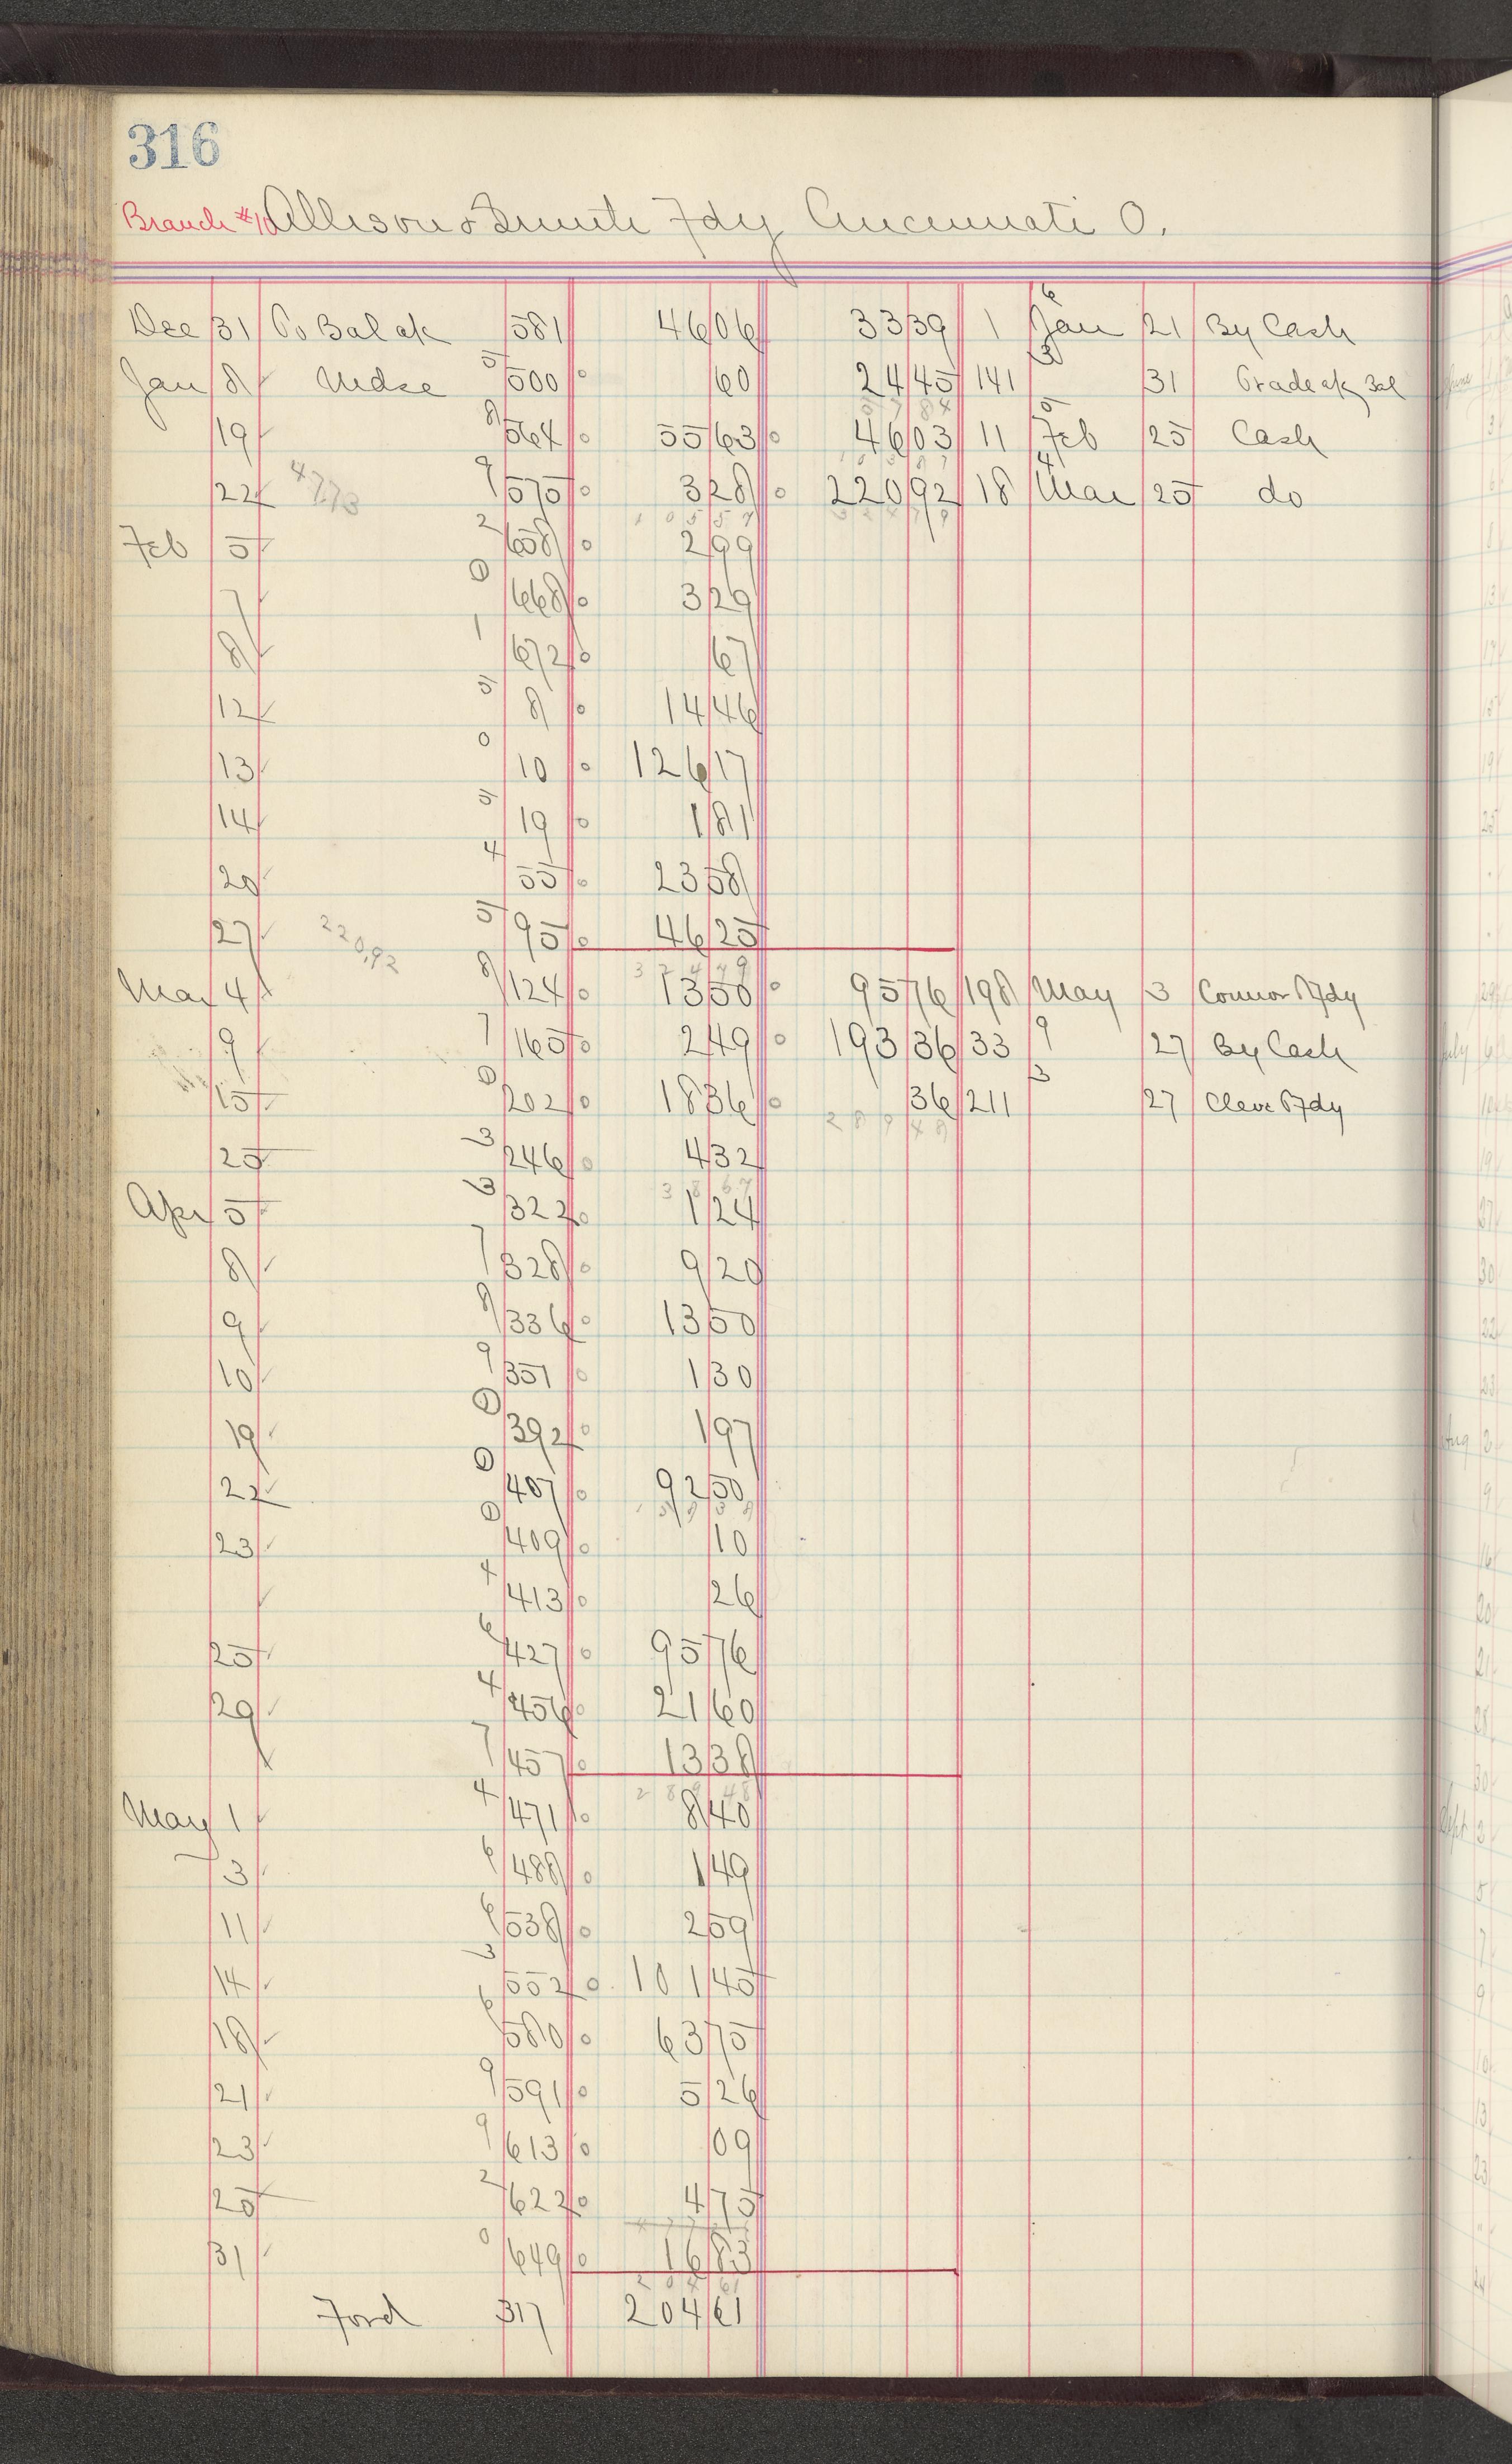 316
Branch #10 Allison & Smith Fdy Cincinnati O.
Dec 31 To Bal a/c 581 46 06 33 39 1 6 Jan 21 By Cash
Jan 8 Mdse 5 500 60 24 45 141 3 31 Trade a/c Bal
19 8 564 55 63 46 03 11 5 Feb 25 Cash
22 47.73 9 575 3 28 220 92 18 4 Mar 25 do
Feb 5 2 658 2 99
7 0 668 3 29
8 1 672 67
12 5 8 14 46
13 0 10 126 17
14 5 19 1 81
20 4 55 23 58
27 220.92 5 95 46 25
374 49
Mar 4 8 124 13 50 95 76 198 May 3 Connor Fdy
9 7 165 2 49 193 36 33 9 27 By Cash
15 0 202 18 36 36 211 3 27 Cleve Fdy
289 48
25 3 246 4 32
38 67
Apr 5 3 322 1 24
8 7 328 9 20
9 8 336 13 50
10 9 351 1 30
19 0 392 1 97
22 0 407 92 50
23 0 409 10
4 413 26
25 6 427 95 76
29 4 456 21 60
7 457 13 38
289 48
May 1 4 471 8 40
3 6 488 1 49
11 6 538 2 59
14 3 552 101 45
18 6 580 63 75
21 9 591 5 26
23 9 613 09
25 2 622 4 75
31 0 649 16 83
204 61
Ford 317 204 61